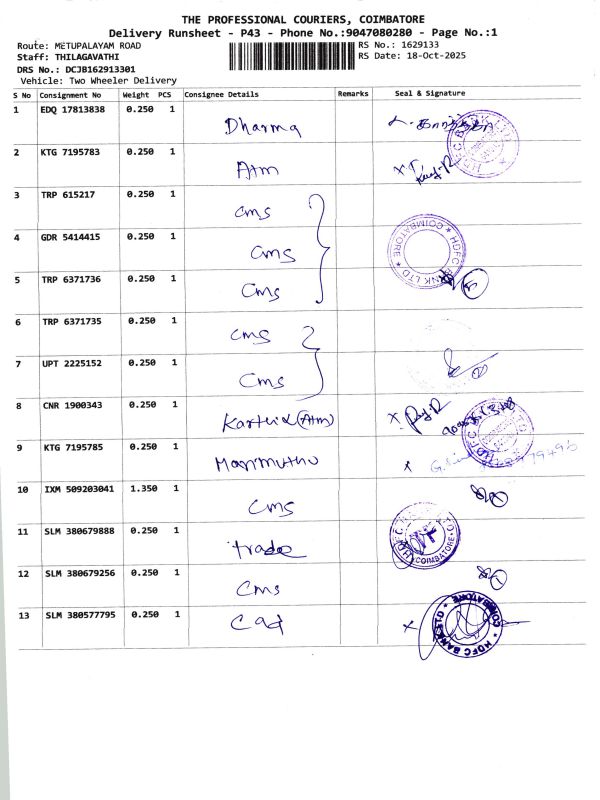 THE PROFESSIONAL COURIERS, COIMBATORE
Delivery Runsheet - P43 - Phone No.:9047080280 - Page No.:1
Route: METUPALAYAM ROAD RS No.: 1629133
Staff: THILAGAVATHI RS Date: 18-Oct-2025
DRS No.: DCJB162913301
Vehicle: Two Wheeler Delivery
S No Consignment No Weight PCS Consignee Details Remarks Seal & Signature
1 EDQ 17813838 0.250 1 Dharma
2 KTG 7195783 0.250 1 Atm
3 TRP 615217 0.250 1 cms
4 GDR 5414415 0.250 1 cms
COIMBATORE * HDFC BANK LTD *
5 TRP 6371736 0.250 1 cms
6 TRP 6371735 0.250 1 cms
7 UPT 2225152 0.250 1 cms
8 CNR 1900343 0.250 1 Karthik (Atm)
9 KTG 7195785 0.250 1 Marimuthu
10 IXM 509203041 1.350 1 cms
11 SLM 380679888 0.250 1 trade
COIMBATORE
12 SLM 380679256 0.250 1 cms
13 SLM 380577795 0.250 1 Cad
COIMBATORE * HDFC BANK LTD *